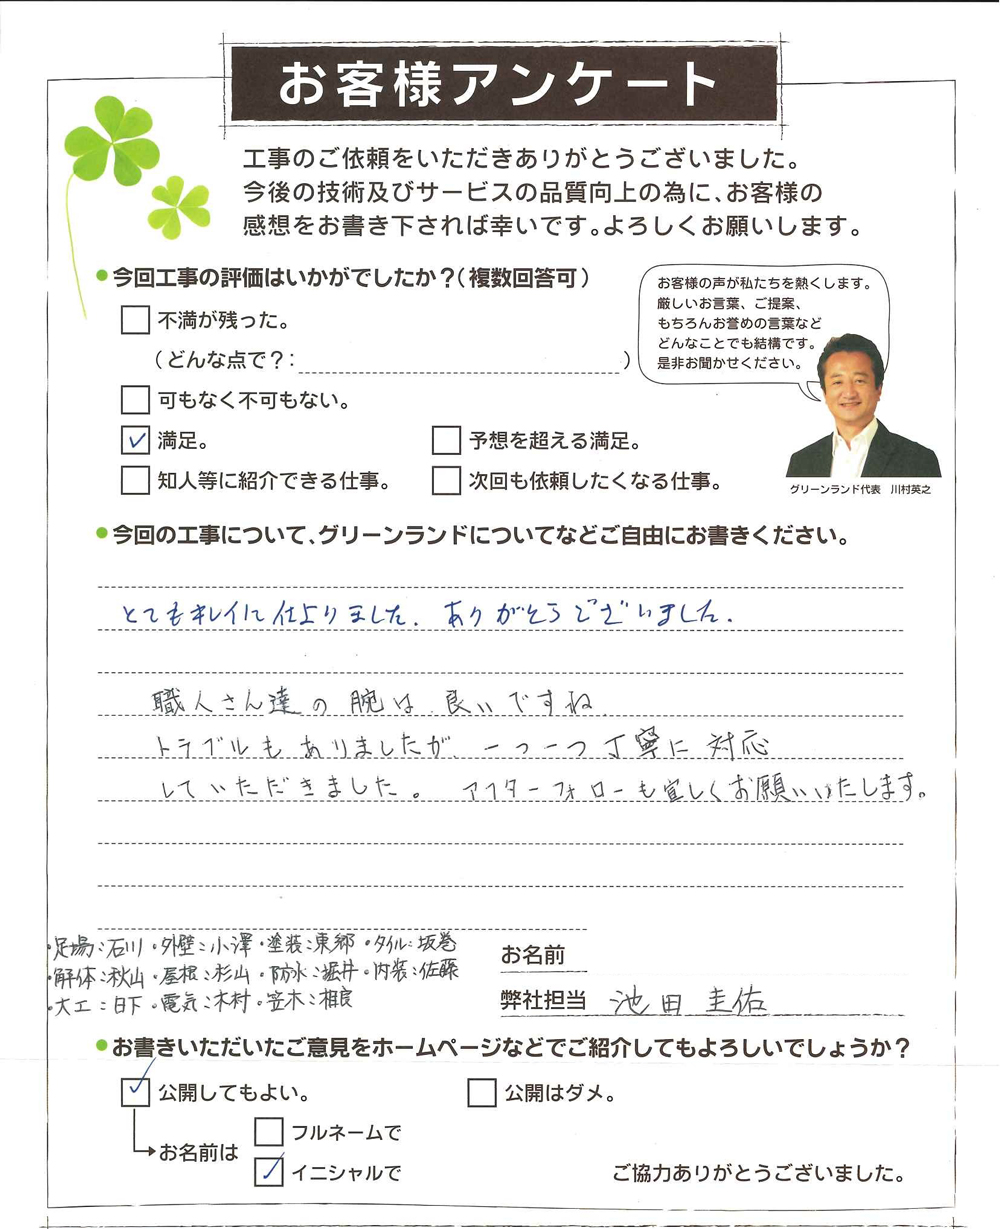 お客様アンケート
工事のご依頼をいただきありがとうございました。
今後の技術及びサービスの品質向上の為に、お客様の
感想をお書き下されば幸いです。よろしくお願いします。
今回工事の評価はいかがでしたか?(複数回答可)
不満が残った。
(どんな点で?: )
可もなく不可もない。
満足。
予想を超える満足。
知人等に紹介できる仕事。
次回も依頼したくなる仕事。
お客様の声が私たちを熱くします。
厳しいお言葉、ご提案、
もちろんお誉めの言葉など
どんなことでも結構です。
是非お聞かせください。
グリーンランド代表 川村英之
今回の工事について、グリーンランドについてなどご自由にお書きください。
とてもキレイに仕上りました。ありがとうございました。
職人さん達の腕は良いですね。
トラブルもありましたが、一つ一つ丁寧に対応
していただきました。アフターフォローも宜しくお願いいたします。
・足場:石川・外壁:小澤・塗装:東郷・タイル:坂巻
・解体:秋山・屋根:杉山・防水:堀井・内装:佐藤
・大工:日下・電気:木村・笠木:相良
お名前
弊社担当 池田圭佑
お書きいただいたご意見をホームページなどでご紹介してもよろしいでしょうか?
公開してもよい。
公開はダメ。
お名前は
フルネームで
イニシャルで
ご協力ありがとうございました。